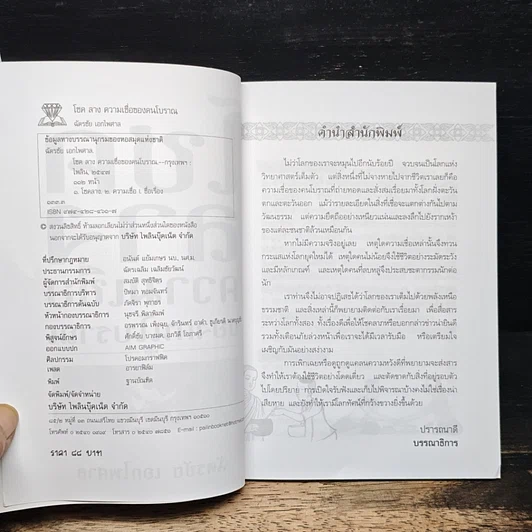 โชค ลาง ความเชื่อของคนโบราณ
ฉัตรชัย เอกไพศาล
ข้อมูลทางบรรณานุกรมของหอสมุดแห่งชาติ
ฉัตรชัย เอกไพศาล.
โชค ลาง ความเชื่อของคนโบราณ.--กรุงเทพฯ :
ไพลิน, ๒๕๔๗
๑๑๒ หน้า
๑. โชคลาง ๒. ความเชื่อ I. ชื่อเรื่อง
๑๓๓.๓
ISBN
สงวนลิขสิทธิ์ ห้ามลอกเลียนไม่ว่าส่วนหนึ่งส่วนใดของหนังสือ
นอกจากจะได้รับอนุญาตจาก บริษัท ไพลินบุ๊คเน็ต จำกัด
ที่ปรึกษากฎหมาย อนันต์ แย้มเกษร นบ., นศ.ม.
ประธานกรรมการ ฉัตรเฉลิม เฉลิมชัยวัฒน์
ผู้จัดการสำนักพิมพ์ สมบัติ สุทธิจิตร
บรรณาธิการบริหาร ปัทมา
บรรณาธิการต้นฉบับ ภัคจิรา
หัวหน้ากองบรรณาธิการ นุชจรี พิลาพันธ์
กองบรรณาธิการ อรพรรณ
พิสูจน์อักษร ศักดิ์ชัย
ออกแบบปก AIM GRAPHIC
ศิลปกรรม โปรคอมกราฟฟิค
เพลต อารยาฟิล์ม
พิมพ์ ฐานบัณฑิต
จัดพิมพ์/จัดจำหน่าย
บริษัท ไพลินบุ๊คเน็ต จำกัด
หมู่ที่ ๑๓ ถนนเสรีไทย แขวงมีนบุรี เขตมีนบุรี กรุงเทพฯ ๑๐๕๑๐
โทรศัพท์ โทรสาร E-mail :
ราคา ๘๘ บาท
คำนำสำนักพิมพ์
ไม่ว่าโลกของเราจะหมุนไปอีกนับร้อยปี จวบจนเป็นโลกแห่ง
วิทยาศาสตร์เต็มตัว แต่สิ่งหนึ่งที่ไม่จางหายไปจากชีวิตเราเลยก็คือ
ความเชื่อของคนโบราณที่ถ่ายทอดและสั่งสมเรื่อยมาทั้งโลกฝั่งตะวัน
ตกและตะวันออก แม้ว่ารายละเอียดในสิ่งที่เชื่อจะแตกต่างกันไปตาม
วัฒนธรรม แต่ความยึดถืออย่างเหนียวแน่นและลงลึกไปยังรากเหง้า
ของแต่ละชนชาติล้วนเหมือนกัน
หากไม่มีความจริงอยู่เลย เหตุใดความเชื่อเหล่านั้นจึงทวน
กระแสแห่งโลกยุคใหม่ได้ เหตุใดคนไม่น้อยจึงใช้ชีวิตอย่างระมัดระวัง
และมีหลักเกณฑ์ และเหตุใดคนที่ลบหลู่จึงประสบชะตากรรมนักต่อ
นัก
เราท่านจึงไม่อาจปฏิเสธได้ว่าโลกของเราเต็มไปด้วยพลังเหนือ
ธรรมชาติ และสิ่งเหล่านี้ก็พยายามติดต่อกับเราเรื่อยมา เพื่อสื่อสาร
ระหว่างโลกทั้งสอง ทั้งเรื่องดีเพื่อให้โชคลาภหรือบอกกล่าวข่าวน่ายินดี
รวมทั้งเตือนภัยล่วงหน้าเพื่อเราจะได้มีเวลารับมือ หรือเตรียมใจ
เผชิญกับมันอย่างสง่างาม
การเพิกเฉยหรือดูถูกดูแคลนความหวังดีที่พยายามจะส่งสาร
จึงทำให้เราต้องใช้ชีวิตอย่างโดดเดี่ยว และตัดขาดกับสิ่งที่อยู่รอบตัว
ไปโดยปริยาย การเปิดใจรับฟังและเก็บไปพิจารณาบ้างคงไม่ใช่เรื่องน่า
เสียหาย และยังทำให้เรามีโลกทัศน์ที่กว้างขวางยิ่งขึ้นด้วย
ปรารถนาดี
บรรณาธิการ